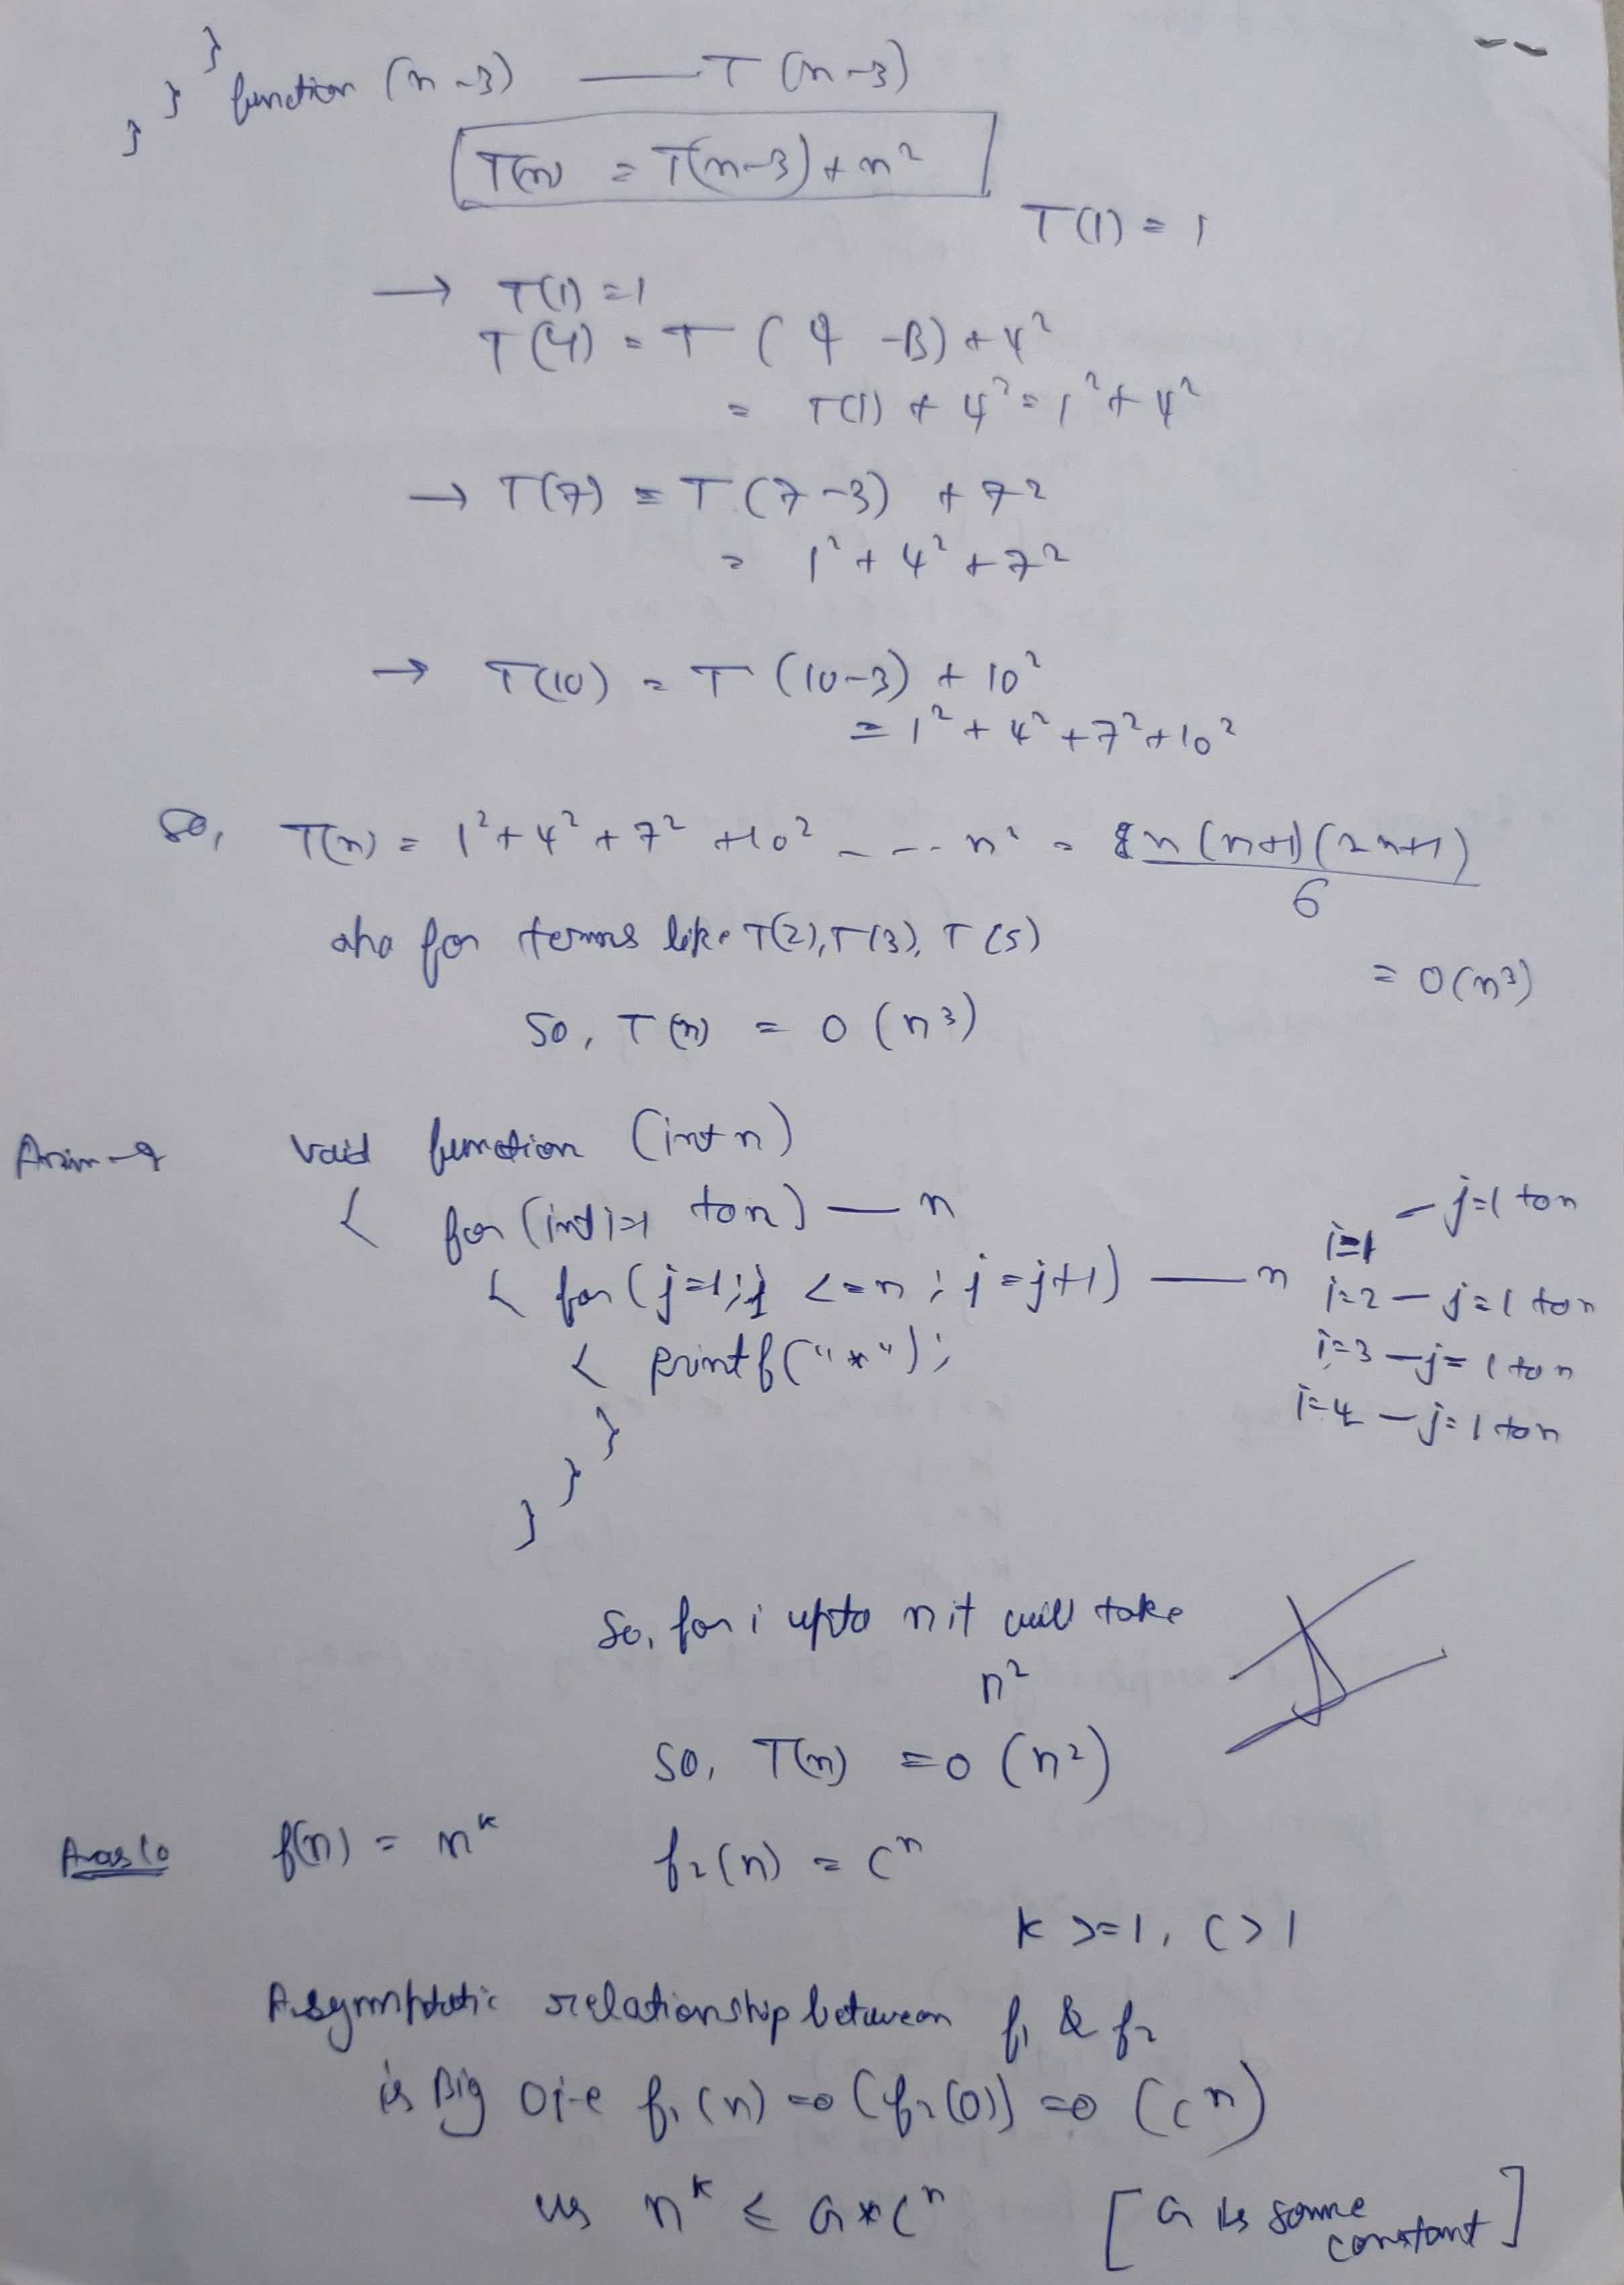 }
} function (n-3) — T(n-3)
}
T(n) = T(n-3) + n²
T(1) = 1
→ T(1) = 1
T(4) = T(4-3) + 4²
= T(1) + 4² = 1² + 4²
→ T(7) = T(7-3) + 7²
= 1² + 4² + 7²
→ T(10) = T(10-3) + 10²
= 1² + 4² + 7² + 10²
So, T(n) = 1² + 4² + 7² + 10² ---- n² = n(n+1)(2n+1)
6
for terms like T(2), T(3), T(5)
= O(n³)
So, T(n) = O(n³)
void function (int n)
{ for (int i=1 to n) — n
— j=1 to n
i=1
{ for (j=1; j <= n; j=j+1) — n
i=2 — j=1 to n
{ printf("*");
i=3 — j=1 to n
i=4 — j=1 to n
}
}
}
So, for i upto n it will take
n²
So, T(n) = O(n²)
Ans 10 f(n) = n^k f₂(n) = c^n
k >= 1, c > 1
Asymptotic relationship between f₁ & f₂
is Big O i-e f₁(n) = O(f₂(0)) = O(c^n)
n^k ≤ G*c^n [G is some
constant]